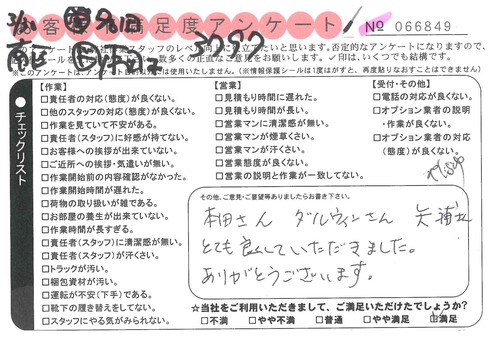 お客様満足度アンケート
No 066849
このアンケートは
社作業スタッフのレベル向上に役立てたいと思います。否定的なアンケートになりますので、
数多くの正直なご意見をお願いします。✓印はいくつでも結構です。
※このアンケートは、
使用いたしません。（※情報保護シールは1度はがすと、再度貼りなおすことはできません）
チェックリスト
【作業】
□責任者の対応（態度）が良くない。
□他のスタッフの対応（態度）が良くない。
□作業を見ていて不安がある。
□責任者（スタッフ）に好感が持てない。
□お客様への挨拶が出来ていない。
□ご近所への挨拶・気遣いが無い。
□作業開始前の内容確認がなかった。
□作業開始時間が遅れた。
□荷物の取り扱いが雑である。
□お部屋の養生が出来ていない。
□作業時間が長すぎる。
□責任者（スタッフ）に清潔感が無い。
□責任者（スタッフ）が汗くさい。
□トラックが汚い。
□梱包資材が汚い。
□運転が不安（下手）である。
□靴下の履き替えをしてない。
□スタッフにやる気がみられない。
【営業】
□見積もり時間に遅れた。
□見積もり時間が長い。
□営業マンに清潔感が無い。
□営業マンが煙草くさい。
□営業マンが汗くさい。
□営業態度が良くない。
□営業の説明と作業が一致してない。
【受付・その他】
□電話の対応が良くない。
□オプション業者の説明
・作業が良くない。
□オプション業者の対応
（態度）が良くない。
その他、ご意見・ご要望等ありましたらお書き下さい。
本田さん ダルウィンさん 矢浦さん
とても良くしていただきました。
ありがとうございます。
☆当社をご利用いただきまして、ご満足いただけたでしょうか？
□不満 □やや不満 □普通 □やや満足 ☑満足